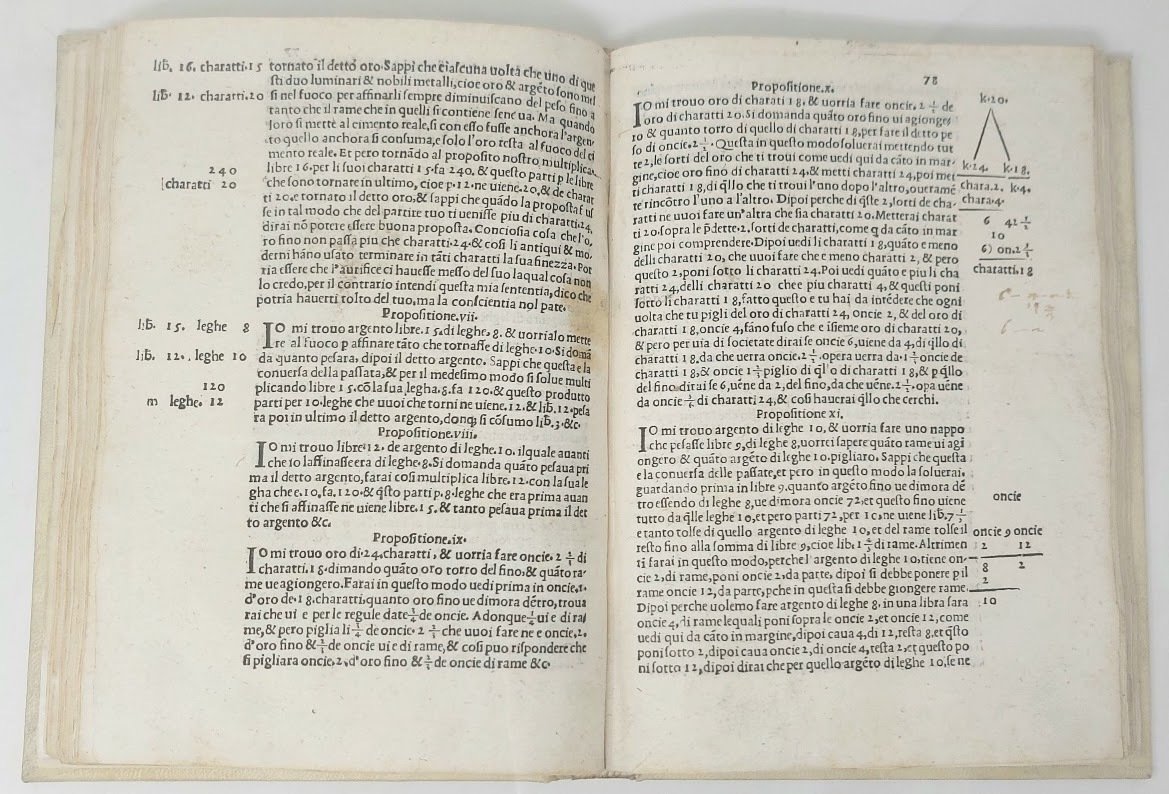 lib. 16. charatti. 15
lib. 12. charatti. 20
240
charatti 20
tornato il detto oro. Sappi che ciascuna uolta che uno di que
sti duo luminari & nobili metalli, cioe oro & argēto sono mes
si nel fuoco per affinarli sempre diminuiscano del peso fino a
tanto che il rame che in quelli si contiene sene ua. Ma quando
loro si mette al cimento reale, si con esso fusse anchora l'argen
to quello anchora si consuma, e solo l'oro resta al fuoco del ci
mento reale. Et pero tornādo al proposito nostro multiplica
libre 16. per li suoi charatti 15. fa 240. & questi parti p le libre
che sono tornate in ultimo, cioe p. 12. ne uiene. 20. & de charat
ti 20. e tornato il detto oro, & sappi che quādo la proposta fus
se in tal modo che del partire tuo ti uenisse piu di charatti. 24.
dirai nō potere essere buona proposta. Conciosia cosa che l'o,
ro fino non passa piu che charatti. 24. & cosi li antiqui & mo,
derni hāno usato terminare in tāti charatti la sua finezza. Pot
ria essere che l'aurifice ci hauesse messo del suo laqual cosa non
lo credo, per il contrario intendi questa mia sententia, dico che
potria hauerti tolto del tuo, ma la conscientia nol pate.
Propositione. vii.
lib. 15. leghe 8
lib. 12. leghe 10
120
m leghe. 12
IO mi trouo argento libre. 15. di leghe. 8. & uorrialo mette
re al fuoco p affinare tāto che tornasse di leghe. 10. Si domā
da quanto pesara, dipoi il detto argento. Sappi che questa e la
conuersa della passata, & per il medesimo modo si solue multi
plicando libre 15. cō la sua legha. 8. fa 120. & questo produtto
parti per 10. leghe che uuoi che torni ne uiene. 12. & lib. 12. pesa
ra poi in ultimo il detto argento, donq; si cōsumo lib. 3. &c.
Propositione. viii.
IO mi trouo libre. 12. de argento di leghe. 10. ilquale auanti
che io laffinasse era di leghe. 8. Si domanda quāto pesaua pri
ma il detto argento, farai cosi multiplica libre. 12. con la sua le
gha che e. 10. fa. 120. & q̄sto parti p. 8. leghe che era prima auan
ti che si affinasse ne uiene libre. 15. & tanto pesaua prima il det
to argento &c.
Propositione. ix.
IO mi trouo oro di. 24. charatti, & uorria fare oncie. 2 2/3 di
charatti. 18. dimando quāto oro torro del fino, & quāto ra,
me ue agiongero. Farai in questo modo uedi prima in oncie. 1.
d'oro de. 18. charatti, quanto oro fino ue dimora dētro, troua
rai che ui e per le regule date 3/4 de oncie. Adonque 1/4 ui e di ra
me, & pero piglia li 3/4 de oncie. 2 2/3 che uuoi fare ne e oncie. 2.
d'oro fino & 2/3 de oncie ui e di rame, & cosi puo rispondere che
si pigliara oncie. 2. d'oro fino & 2/3 de oncie di rame &c.
78
Propositione. x.
IO mi trouo oro di charati 18. & uorria fare oncie. 2 1/2 de
oro di charatti 20. Si domanda quāto oro fino ui agionge,
ro & quanto torro di quello di charatti 18, per fare il detto pe
so di oncie. 2 1/2. Questa in questo modo soluerai mettendo tut
te 2, le sorti del oro che ti troui come uedi qui da cāto in mar,
gine, cioe oro fino di charatti 24, & metti charatti 24, poi met
ti charatti 18, di q̄llo che ti troui l'uno dopo l'altro, oueramē
te rincōtro l'uno a l'altro. Dipoi perche di q̄ste 2, sorti de cha,
ratti ne uuoi fare un'altra che sia charatti 20. Metterai charat
ti 20. sopra le p̄dette. 2, sorti de charatti, come q̄ da cāto in mar
gine poi comprendere. Dipoi uedi li charatti 18, quāto e meno
delli charatti 20, che uuoi fare che e meno charatti 2, & pero
questo 2, poni sotto li charatti 24. Poi uedi quāto e piu li cha
ratti 24, delli charatti 20 che e piu charatti 4, & questi poni
sotto li charatti 18, fatto questo e tu hai da intēdere che ogni
uolta che tu pigli del oro di charatti 24, oncie 2, & del oro di
charatti 18, oncie 4, fāno fuso che e isieme oro di charatti 20,
& pero per uia di societate dirai se 6, uiene da 4, di q̄llo di
charatti 18. da che uerra oncie. 2 1/2. opera uerra da. 1 2/3 oncie de
charatti 18, & oncie 1 2/3 piglio di q̄l'o di charatti 18, & p q̄llo
del fino dirai se 6, uēne da 2, del fino, da che uēne. 2 1/2. opa uēne
da oncie 5/6 di charatti 24, & cosi hauerai q̄llo che cerchi.
k. 20.
k. 24. k. 18.
chara. 2. k. 4.
chara. 4.
6 4 2 1/2
10
6) on. 2 1/2
charatti. 18
Propositione xi.
IO mi trouo argento di leghe 10, & uorria fare uno nappo
che pesasse libre 9, di leghe 8, uorrei sapere quāto rame ui agi
ongero & quāto argēto di leghe 10. pigliaro. Sappi che questa
e la conuersa delle passate, et pero in questo modo la soluerai.
guardando prima in libre 9. quanto argēto fino ue dimora dē
tro essendo di leghe 8, ue dimora oncie 72, et questo fino uiene
tutto da q̄lle leghe 10, et pero parti 72, per 10. ne uiene lib. 7 1/5
e tanto tolse di quello argento di leghe 10, et del rame tolse il
resto fino alla somma di libre 9, cioe lib. 1 4/5 di rame. Altrimen
ti farai in questo modo, perche l'argento di leghe 10, tiene on,
cie 2, di rame, poni oncie 2, da parte, dipoi si debbe ponere p il
rame oncie 12, da parte, pche in questa si debbe giongere rame.
Dipoi perche uolemo fare argento di leghe 8, in una libra sara
oncie 4, di rame lequali poni sopra le oncie 2, et oncie 12, come
uedi qui da cāto in margine, dipoi caua 4, di 12, resta 8. et q̄sto
poni sotto 2, dipoi caua oncie 2, di oncie 4, resta 2, et questo po
ni sotto 12, dipoi dirai che per quello argēto di leghe 10, se ne
oncie
oncie 9 oncie
2 12
8 2
2
10